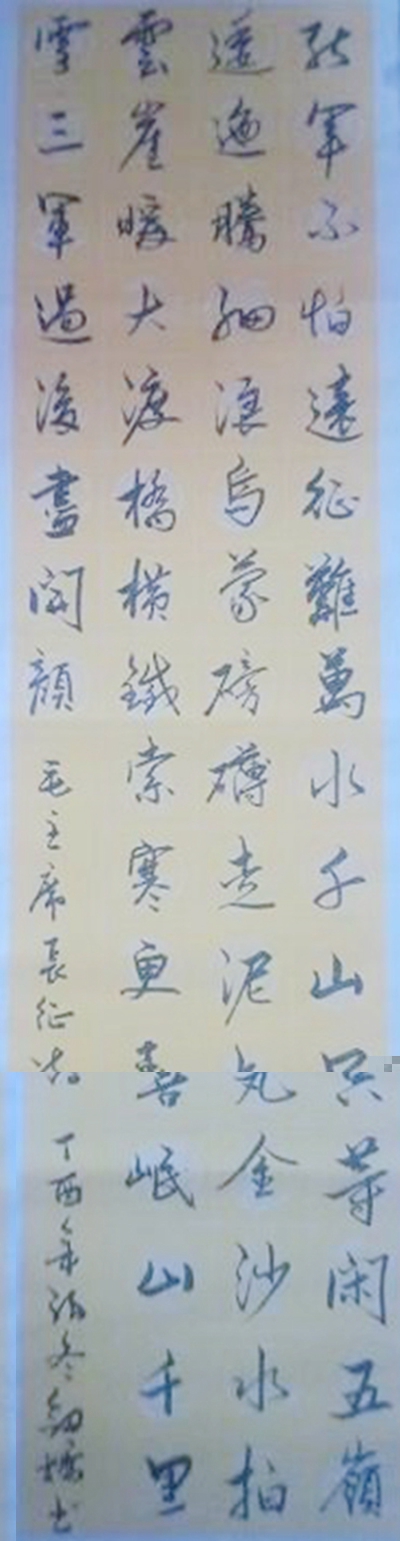 紅軍不怕遠征難萬水千山只等閑五嶺
逶迤騰細浪烏蒙磅礴走泥丸金沙水拍
雲崖暖大渡橋橫鐵索寒更喜岷山千里
雪三軍過後盡開顏 毛主席長征詩 丁酉年初冬書